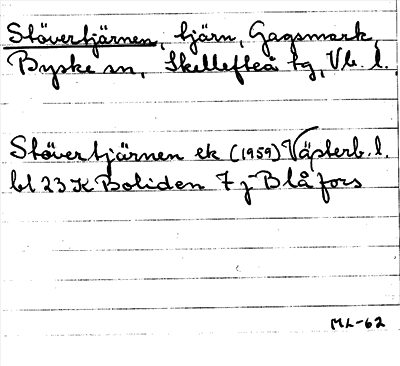 Stövertjärnen, tjärn, Gagsmark,
Byske sn, Skellefteå tg, Vb. l.
Stövertjärnen ek (1959) Västerb. l.
bl 23 K Boliden 7 j Blåfors
ML-62